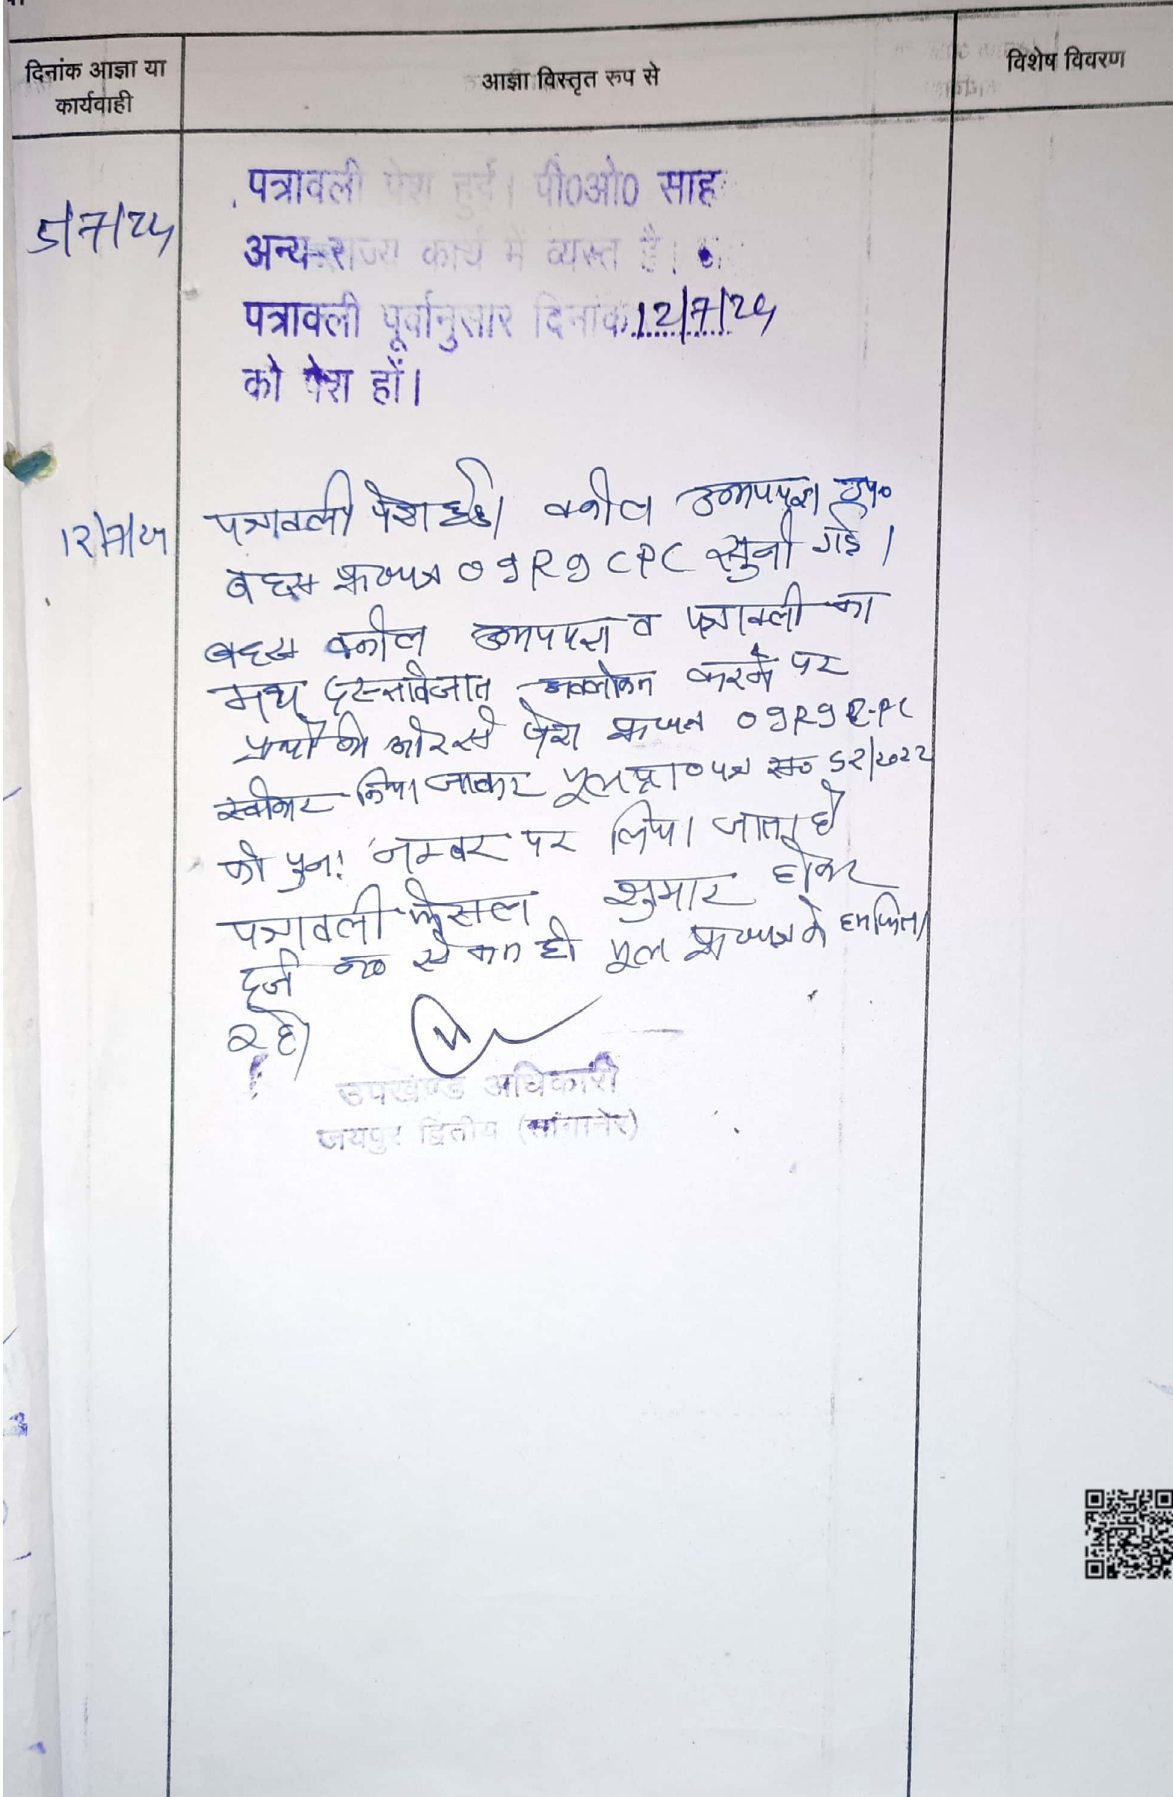 दिनांक आज्ञा या
कार्यवाही
आज्ञा विस्तृत रुप से
विशेष विवरण
5/7/24
पत्रावली पेश हुई। पी0ओ0 साह
अन्य राज्य कार्य में व्यस्त है।
पत्रावली पूर्वानुसार दिनांक 12/7/24
को पेश हों।
12/7/24
पत्रावली पेश हुई। वकील उभयपक्ष उप०
बहस प्रा०पत्र O 9 R 9 CPC सुनी गई।
बहस वकील उभयपक्ष व पत्रावली का
मय दस्तावेजात अवलोकन करने पर
प्रार्थी की ओर से पेश प्रा०पत्र O 9 R 9 CPC
स्वीकार किया जाकर मूल प्रा०पत्र स० 52/2022
को पुनः नम्बर पर लिया जाता है
पत्रावली फैसल शुमार होकर
दर्ज न० से कम हो मूल प्रा०पत्र के
रहे।
उपखण्ड अधिकारी
जयपुर द्वितीय (सांगानेर)